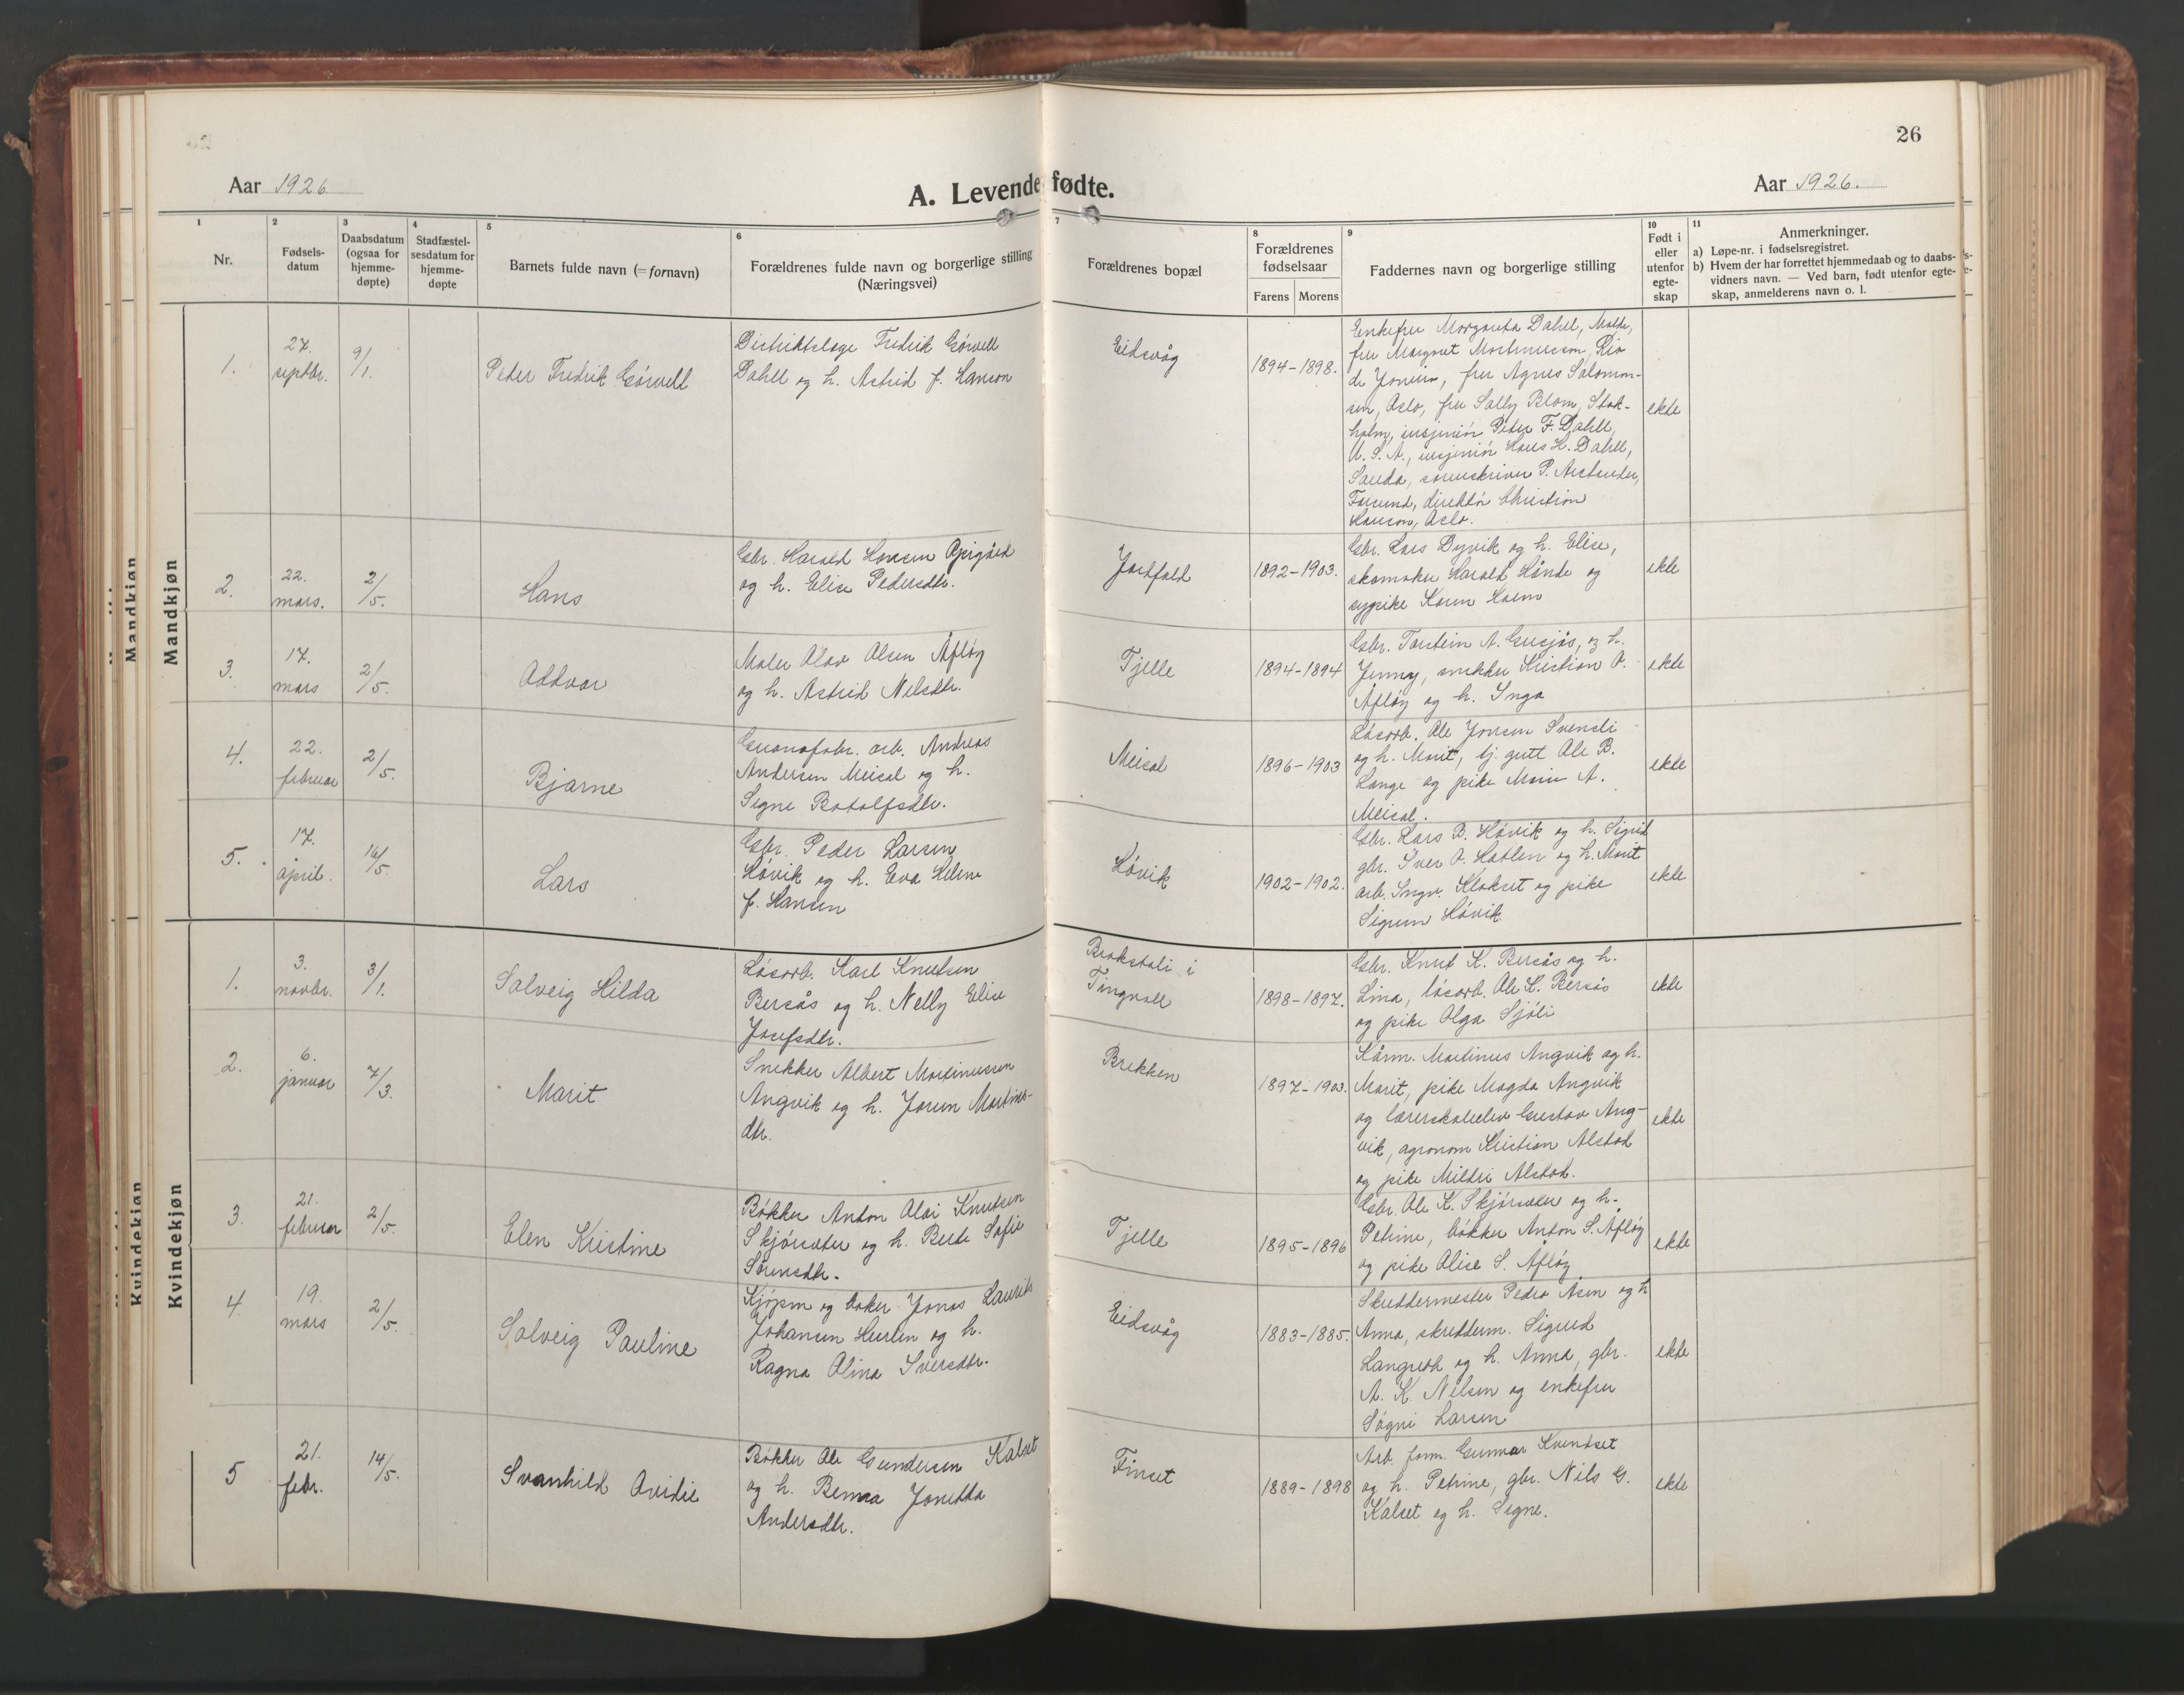 26
Aar 1926
A. Levendefødte.
Aar 1926.
1
2
3
4
5
6
7
8
9
10
11
Nr.
Fødsels-
datum
Daabsdatum
(ogsaa for
hjemme-
døpte)
Stadfæstel-
sesdatum for
hjemme-
døpte
Barnets fulde navn (=fornavn)
Forældrenes fulde navn og borgerlige stilling
(Næringsvei)
Forældrenes bopæl
Forældrenes
fødselsaar
Farens
Morens
Faddernes navn og borgerlige stilling
Født i
eller
utenfor
egte-
skap
Anmerkninger.
a) Løpe-nr. i fødselsregistret.
b) Hvem der har forrettet hjemmedaab og to daabs-
vidners navn. — Ved barn, født utenfor egte-
skap, anmelderens navn o. l.
Mandkjøn
1.
27.
septbr.
9/1.
Peder Fredrik Görvell
Distriktslæge Fredrik Görvell
Dahll og h. Astrid f. Hanson
Eidsvåg
1894-1898.
Enkefru Margareta Dahll, Molde,
fru Margaret Mortensson, Rio
de Janeiro, fru Agnes Salomon-
sen, Oslo, fru Sally Blom, Stok-
holm, insjeniör Peter F. Dahll,
U.S.A., insjeniör Hans H. Dahll,
Sauda, sorenskriver P.
direktör Christian
Hanson, Oslo.
ekte
2.
22.
mars.
2/5.
Hans
Gbr. Harald Hansen
og h. Elise Pedersdtr.
Jordfald
1892-1903.
Gbr. Lars Dyvik og h. Elise,
skomaker Harald Hånde og
sypike Karen
ekte
3.
17.
mars
2/5.
Oddvar
Maler Olav Olsen Åfløy
og h. Astrid Nelsdtr.
Tjelle
1894-1894
Gbr. Torstein A. Gusjås, og h.
Jenny, snekker Kristian O.
Åfløy og h. Inga
ekte
4.
22.
februar
2/5.
Bjarne
Guanofabr. arb. Andreas
Andersen Meisal og h.
Signe Botolfsdtr.
Meisal
1896-1903
Løsarb. Ole Jonsen Svensli
og h. Marit, tj. gutt Ole B.
Lange og pike Marie A.
Meisal.
ekte
5.
17.
april.
16/5.
Lars
Gbr. Peder Larsen
Hövik og h. Eva Helene
f. Hansen
Hövik
1902-1902.
Gbr. Lars B. Hövik og h. Sigrid
gbr. Iver O. Hatlen og h. Marit
arb. Ingv. Klokset og pike
Sigrun Hövik
ekte
Kvindekjøn
1.
3.
novbr.
3/1.
Solveig Hilda
Løsarb. Karl Knutsen
Bersås og h. Nelly Elise
Josefsdtr.
Brokstoli i
Tingvoll
1898-1897.
Gbr. Knut K. Bersås og h.
Lina, løsarb. Ole K. Bersås
og pike Olga Sjöli
ekte
2.
6.
januar
7/3.
Marit
Snekker Albert Martinussen
Angvik og h. Jorun Martinus-
dtr.
Brekken
1897-1903.
Kårm. Martinus Angvik og h.
Marit, pike Magda Angvik
og lærerskoleelev Gustav Ang-
vik, agronom Kristian Alstad
og pike Mildri Alstad.
ekte
3.
21.
februar
2/5.
Elen Kristine
Bøkker Anton Olai Knutsen
Skjörsæter og h. Berte Sofie
Sörensdtr.
Tjelle
1895-1896
Gbr. Ole K. Skjörsæter og h.
Petrine, bøkker Anton S. Åfløy
og pike Alise S. Åfløy
ekte
4.
19.
mars
2/5.
Solveig Pauline
Kjøpm og baker Jonas Laurits
Johansen Huslen og h.
Ragna Olina Iversdtr.
Eidsvåg
1883-1885.
Skreddermester Pedro Åsen og h
Anna, skredderm. Sigurd
Langseth og h. Anna, gbr.
A. K. Nilsen og enkefru
Sögni Larsen
ekte
5
21.
febr.
14/5.
Svanhild Ovidie
Bøkker Ole Gundersen Kalset
og h. Jonetta
Andersdtr.
Finset
1889-1898
Arb. form. Gunnar Kvendset
og h. Petrine, gbr. Nils G.
Kalset og h. Signe.
ekte